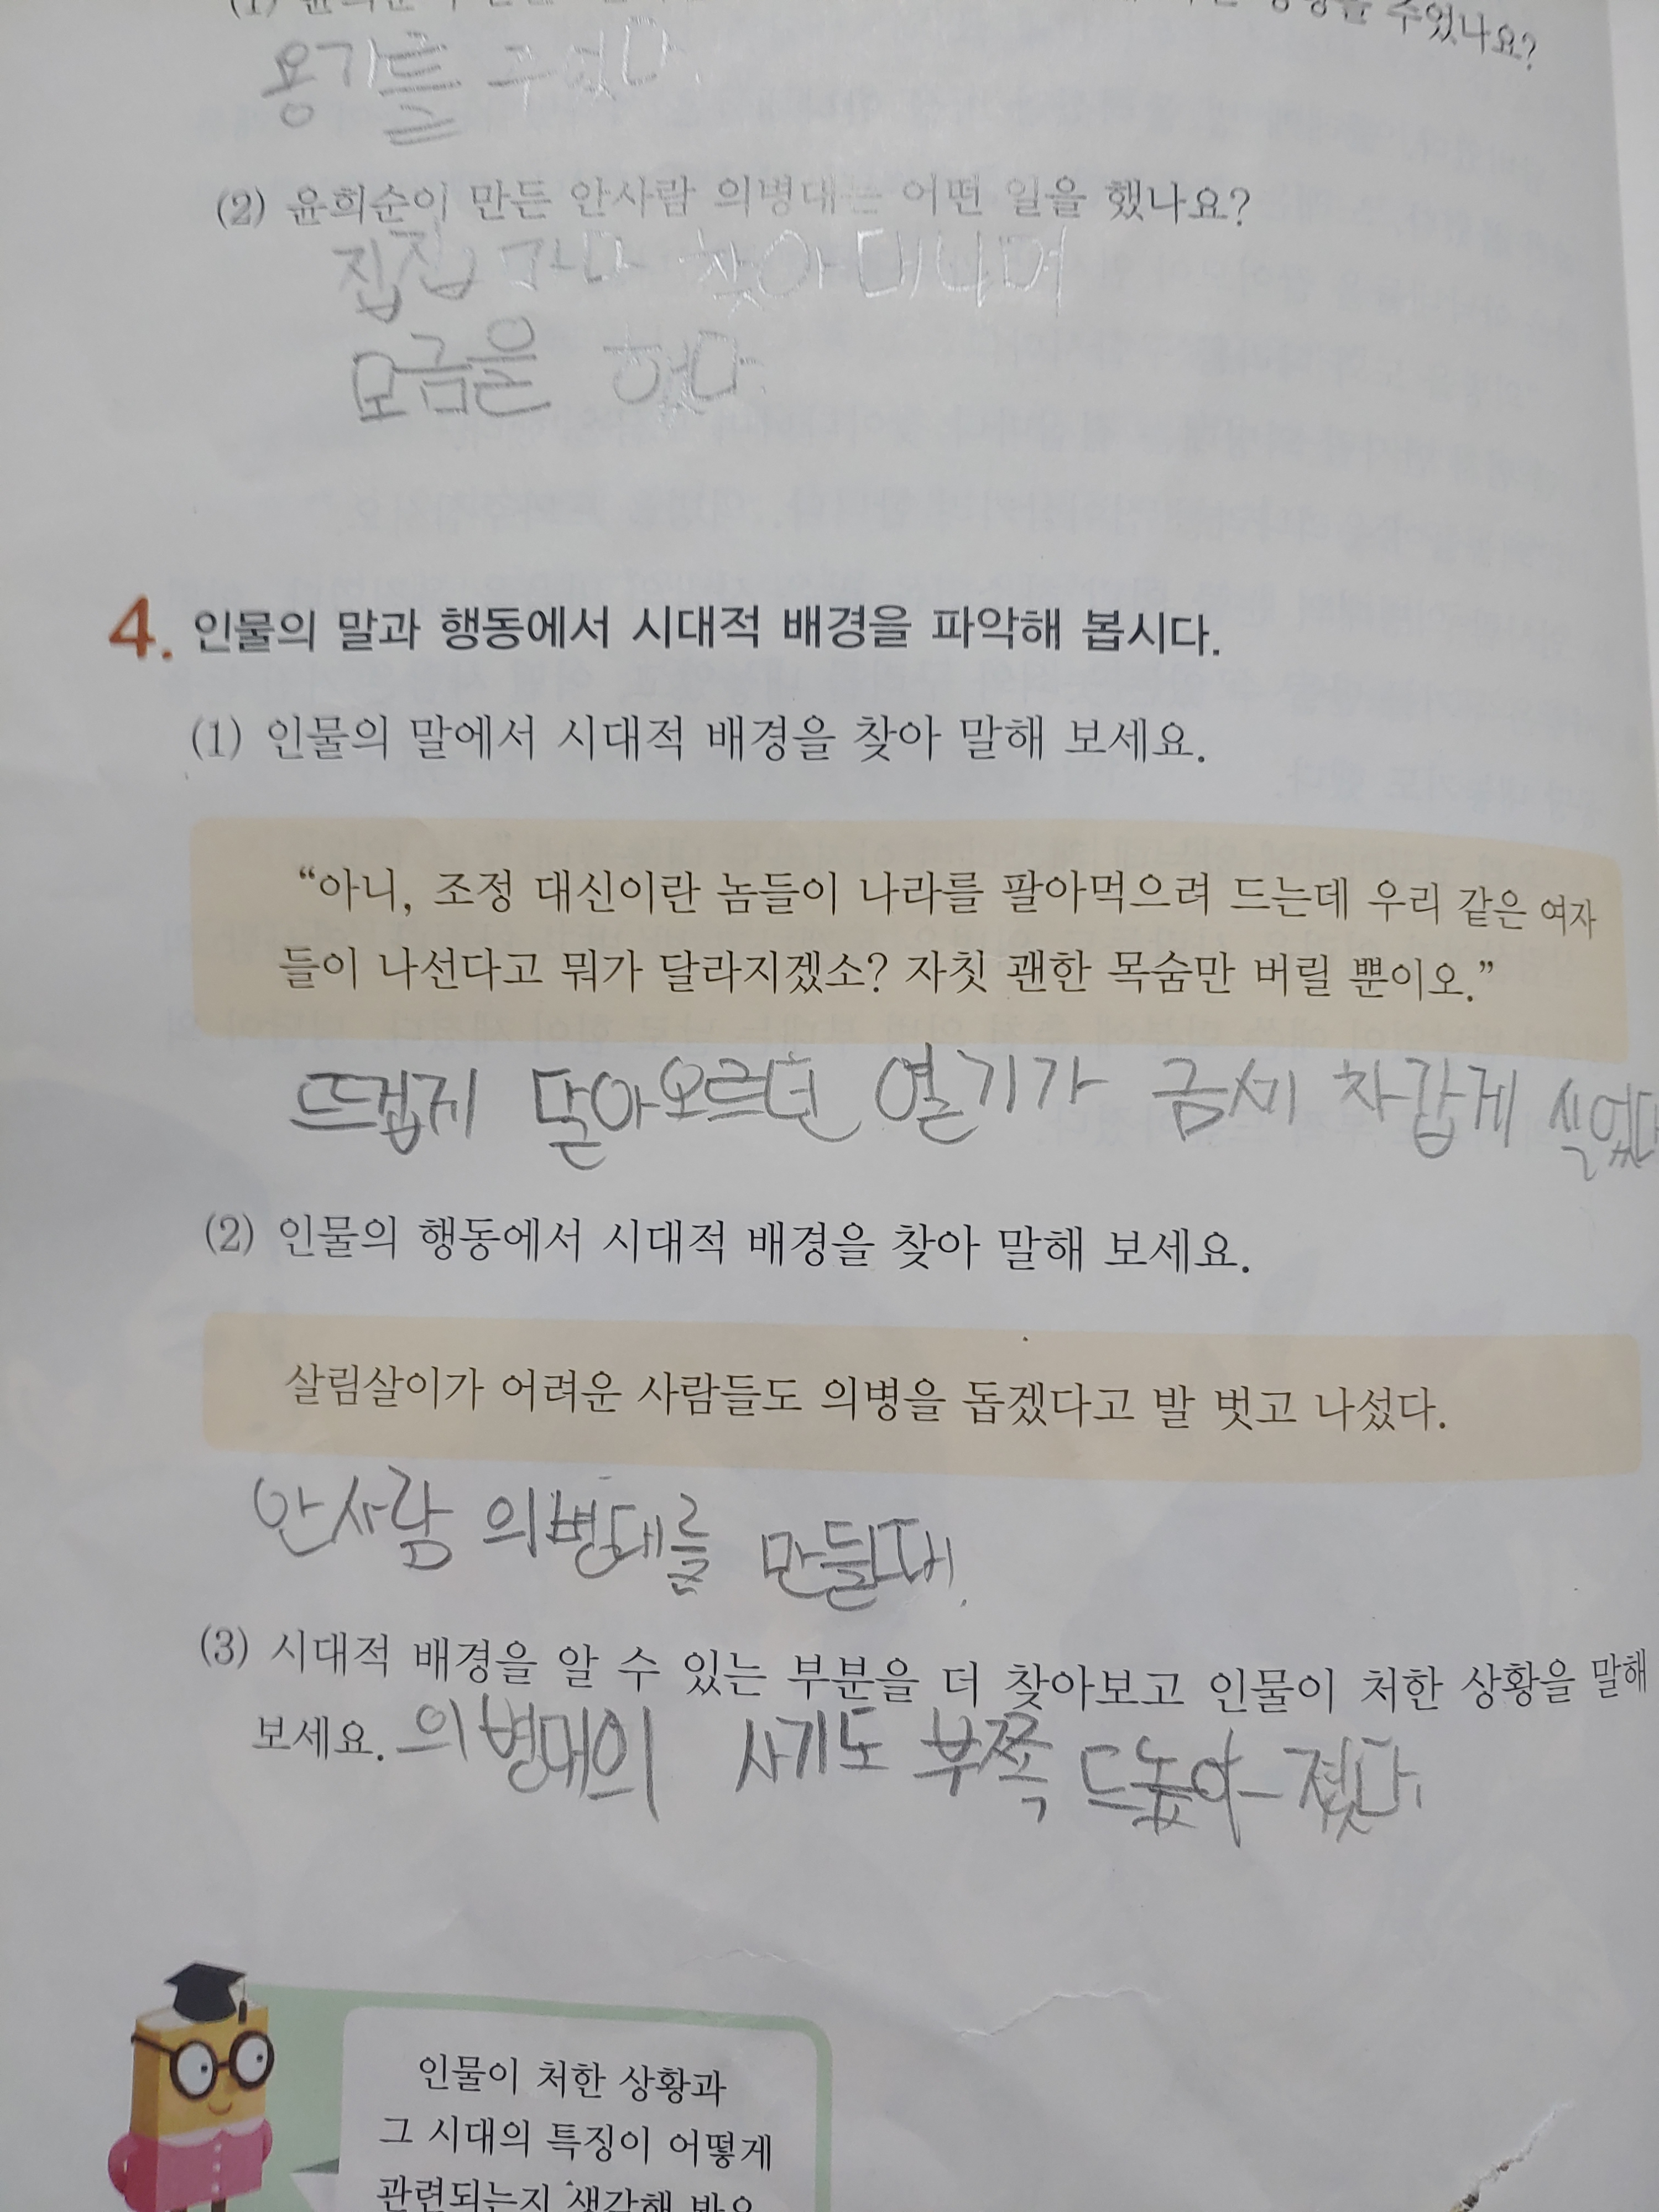 주었나요?
용기를 주었다.
(2) 윤희순이 만든 안사람 의병대는 어떤 일을 했나요?
집집 마다 찾아 대니며
모금을 했다.
4. 인물의 말과 행동에서 시대적 배경을 파악해 봅시다.
(1) 인물의 말에서 시대적 배경을 찾아 말해 보세요.
“아니, 조정 대신이란 놈들이 나라를 팔아먹으려 드는데 우리 같은 여자
들이 나선다고 뭐가 달라지겠소? 자칫 괜한 목숨만 버릴 뿐이오.”
뜨겁게 달아오르던 열기가 금세 차갑게 식었다
(2) 인물의 행동에서 시대적 배경을 찾아 말해 보세요.
살림살이가 어려운 사람들도 의병을 돕겠다고 발 벗고 나섰다.
안사람 의병대를 만들때.
(3) 시대적 배경을 알 수 있는 부분을 더 찾아보고 인물이 처한 상황을 말해
보세요. 의병대의 사기도 부쩍 드높아졌다.
인물이 처한 상황과
그 시대의 특징이 어떻게
관련되는지 생각해 봐요